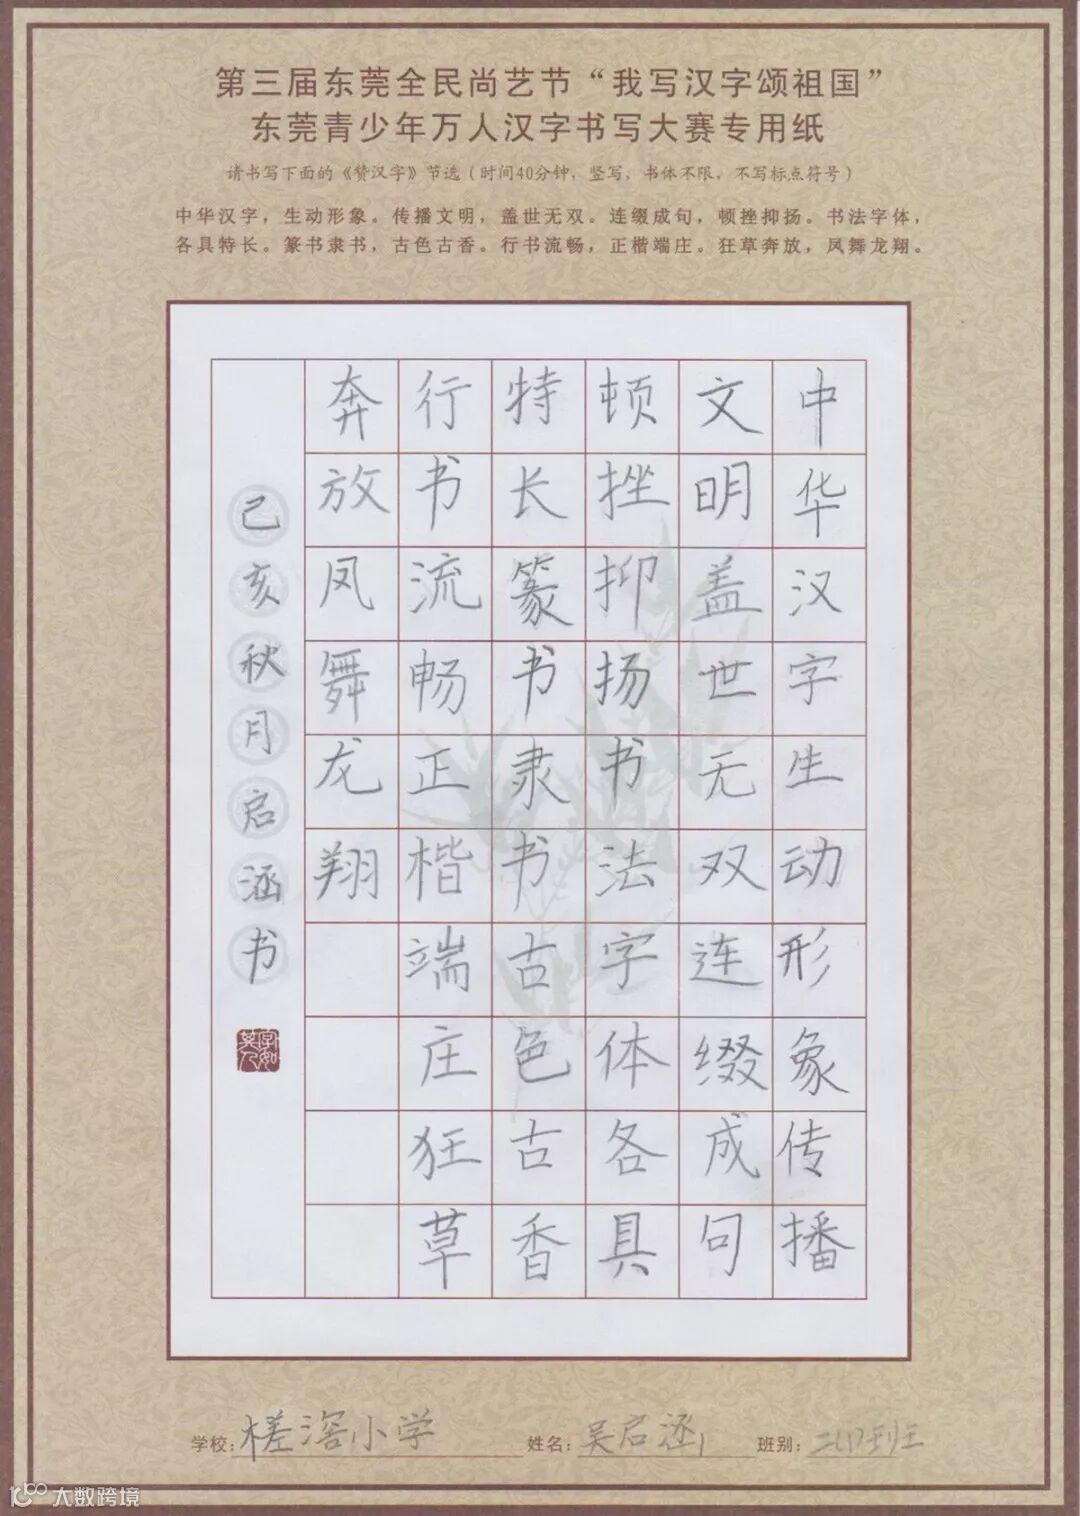 第三届东莞全民尚艺节“我写汉字颂祖国”
东莞青少年万人汉字书写大赛专用纸
请书写下面的《赞汉字》节选（时间40分钟，竖写，书体不限，不写标点符号）
中华汉字，生动形象。传播文明，盖世无双。连缀成句，顿挫抑扬。书法字体，
各具特长。篆书隶书，古色古香。行书流畅，正楷端庄。狂草奔放，凤舞龙翔。
中华汉字生动形象传播
文明盖世无双连缀成句
顿挫抑扬书法字体各具
特长篆书隶书古色古香
行书流畅正楷端庄狂草
奔放凤舞龙翔
己亥秋月启涵书
字如其人
学校：槎滘小学 姓名：吴启涵 班别：
大数跨境